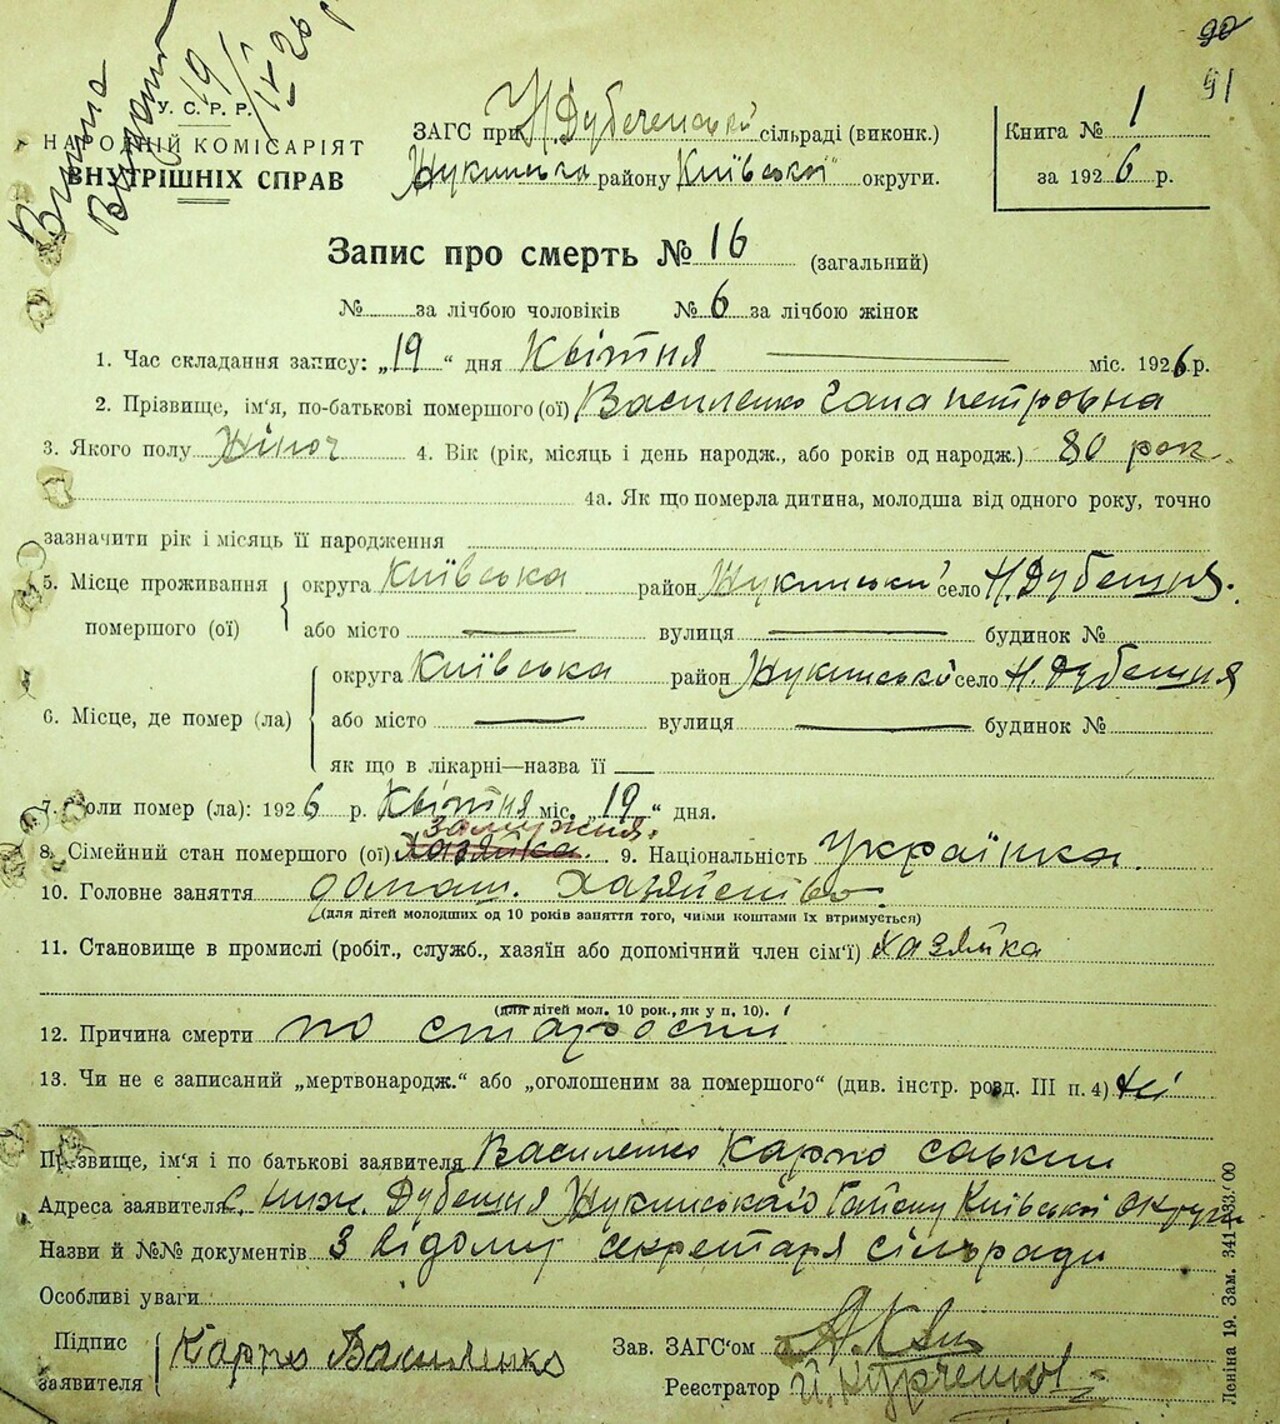 90
91
У. С. Р. Р.
19/IV 26
НАРОДНІЙ КОМІСАРІЯТ
ВНУТРІШНІХ СПРАВ
ЗАГС при Н. Дубеченській сільраді (виконк.)
Жукинська району Київської округи.
Книга № 1
за 1926 р.
Запис про смерть № 16 (загальний)
№ за лічбою чоловіків № 6 за лічбою жінок
1. Час складання запису: „19“ дня Квітня міс. 1926 р.
2. Прізвище, ім‘я, по-батькові помершого (ої) Василенко Гапа петровна
3. Якого полу Жіноч 4. Вік (рік, місяць і день народж., або років од народж.) 80 рок.
4а. Як що померла дитина, молодша від одного року, точно
зазначити рік і місяць її народження
5. Місце проживання помершого (ої) округа Київська район Жукинський село Н. Дубешня.
або місто вулиця будинок №
6. Місце, де помер (ла) округа Київська район Жукинській село Н. Дубешня
або місто вулиця будинок №
як що в лікарні—назва її
7. Коли помер (ла): 1926 р. Квітня міс. „19“ дня.
замужня.
8. Сімейний стан помершого (ої) хазяйка. 9. Національність Українка.
10. Головне заняття домаш. хазяйство.
(для дітей молодших од 10 років заняття того, чиїми коштами їх втримується)
11. Становище в промислі (робіт., служб., хазяїн або допомічний член сім‘ї) хазяйка
(для дітей мол. 10 рок., як у п. 10).
12. Причина смерти по старості
13. Чи не є записаний „мертвонародж.“ або „оголошеним за помершого“ (див. інстр. розд. III п. 4) ні
Прізвище, ім‘я і по батькові заявителя Василенко Карпо савкин
Адреса заявителя с. Ниж. Дубешня Жукинського Району Київської округи
Назви й №№ документів З відому секретаря сільради
Особливі уваги
Підпис заявителя Карпо Василенко
Зав. ЗАГС‘ом
Реєстратор
Леніна 19. Зам. 341